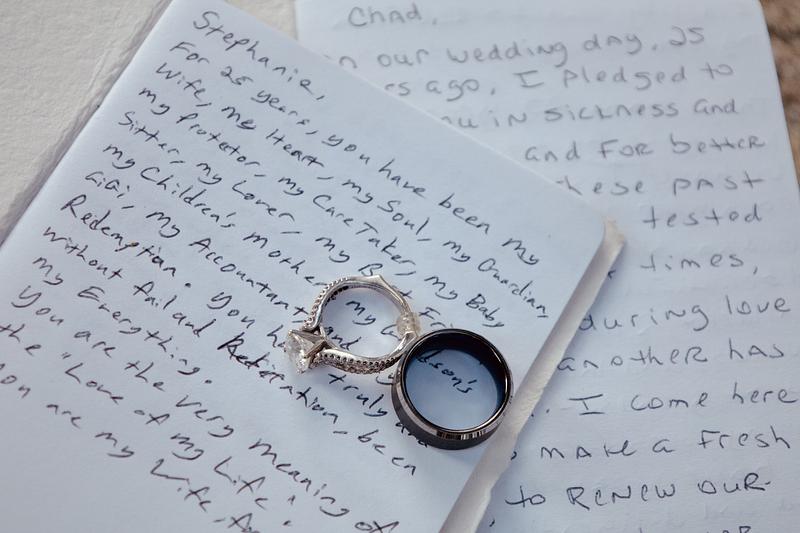 Stephanie,
For 25 years, you have been my
wife, my Heart, my Soul, my Guardian,
my Protector, my Care Taker, my Baby
Sitter, my Lover, my
my Children's my
GiGi, my Accountant, and my
Redemption. You truly and
without fail and been
my Everything.
You are the very meaning of
the "Love of my Life".
you are my Wife, for
Chad,
on our wedding day, 25
ago, I pledged to
in sickness and
and for better
these past
tested
times,
during love
another has
I come here
make a fresh
to renew our